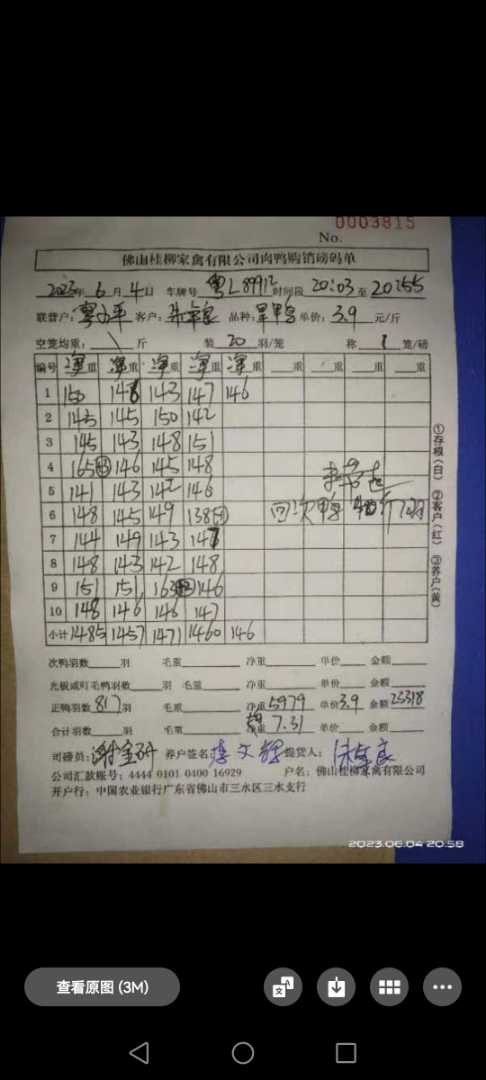 0003815
No.
佛山桂柳家禽有限公司肉鸭购销磅码单
2023年6月4日 车牌号 粤L8991 时间段 20:03 至 20:55
联营户: 平 客户: 品种: 单价: 3.9 元/斤
空笼均重: \ 斤 装 20 羽/笼 称 1 笼/磅
编号 净重 净重 净重 净重 净重 重 重 重 重
1 150 148 143 147 146
2 145 145 150 142
3 145 143 148 151
4 165 146 145 148
5 141 143 142 146
6 148 145 149 138 回次鸭
7 144 149 143 147
8 148 143 142 148
9 151 151 163 146
10 148 146 146 147
小计 1485 1457 1471 1460 146
①存根(白) ②客户(红) ③养户(黄)
次鸭羽数 羽 毛重 净重 单价 金额
光板或盯毛鸭羽数 羽 毛重 净重 单价 金额
正鸭羽数 817 羽 毛重 净重 5979 单价 3.9 金额 23318
合计羽数 羽 毛重 均重 7.31 单价 金额
司磅员: 谢 养户签名 李文辉 提货人:
公司汇款账号: 4444 0101 0400 16929 户名: 佛山桂柳家禽有限公司
开户行: 中国农业银行广东省佛山市三水区三水支行
2023.06.04 20:58
查看原图 (3M)